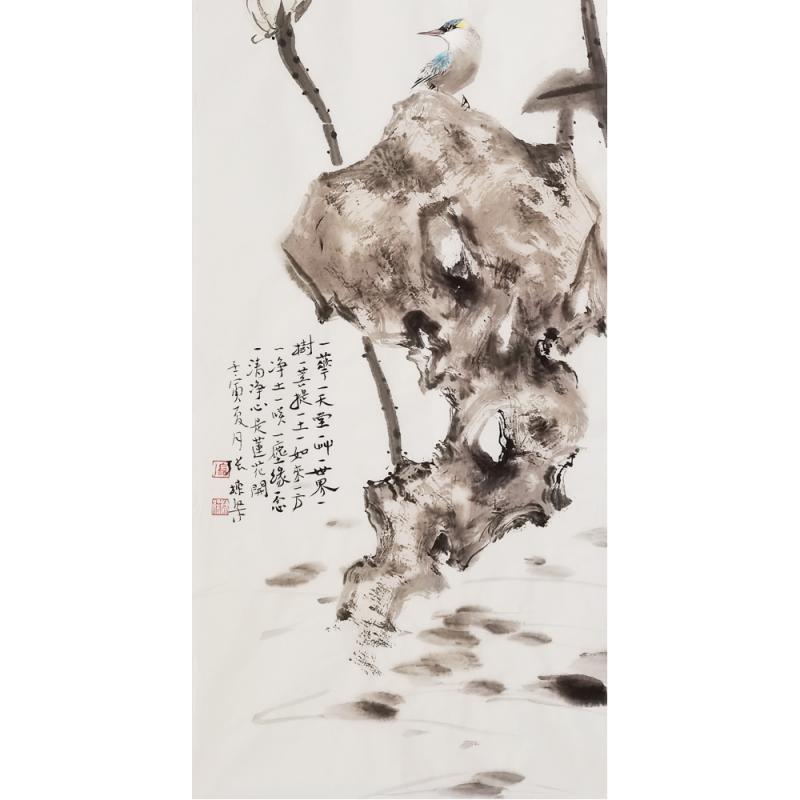 一華一天堂一艸一世界一
樹一菩提一土一如來一方
一净土一笑一塵緣一念
一清净心是蓮花開
壬寅夏月